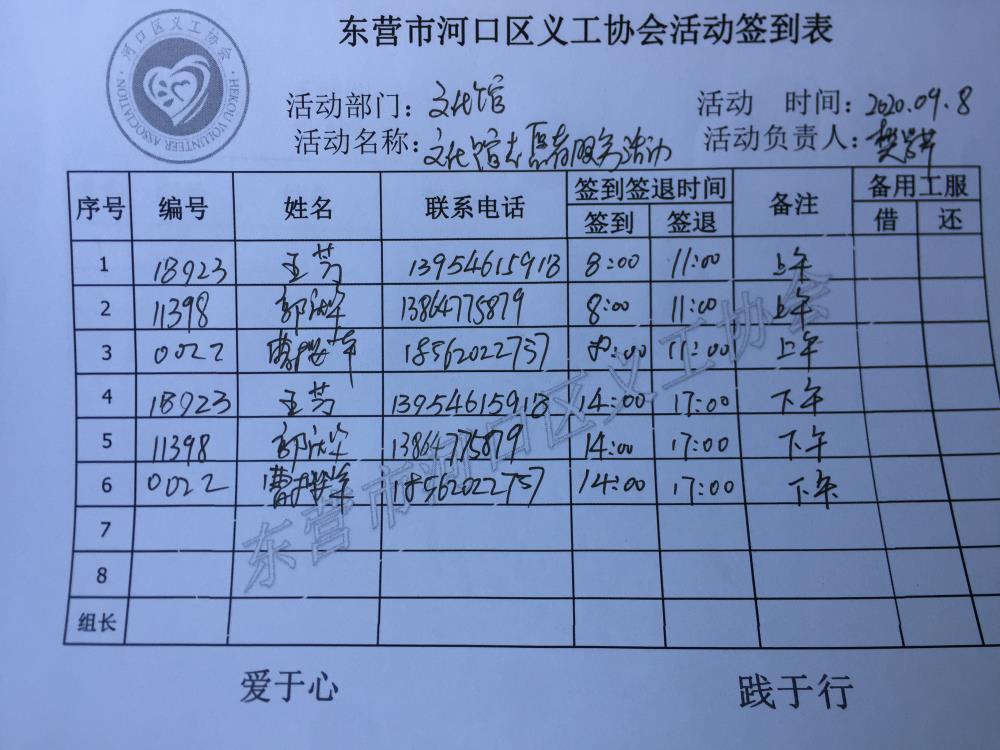 东营市河口区义工协会活动签到表
河口区义工协会
HEKOU VOLUNTEER ASSOCIATION
活动部门：文化馆 活动 时间：2020.09.8
活动名称：文化馆志愿者服务活动 活动负责人：
序号 编号 姓名 联系电话 签到签退时间 备注 备用工服
签到 签退 借 还
1 18923 王芳 13954615918 8:00 11:00 上午
2 11398 郭 13864775879 8:00 11:00 上午
3 0022 曹 18562022757 8:00 11:00 上午
4 18923 王芳 13954615918 14:00 17:00 下午
5 11398 郭 13864775879 14:00 17:00 下午
6 0022 曹 18562022757 14:00 17:00 下午
7
8
组长
东营市河口区义工协会
爱于心 践于行